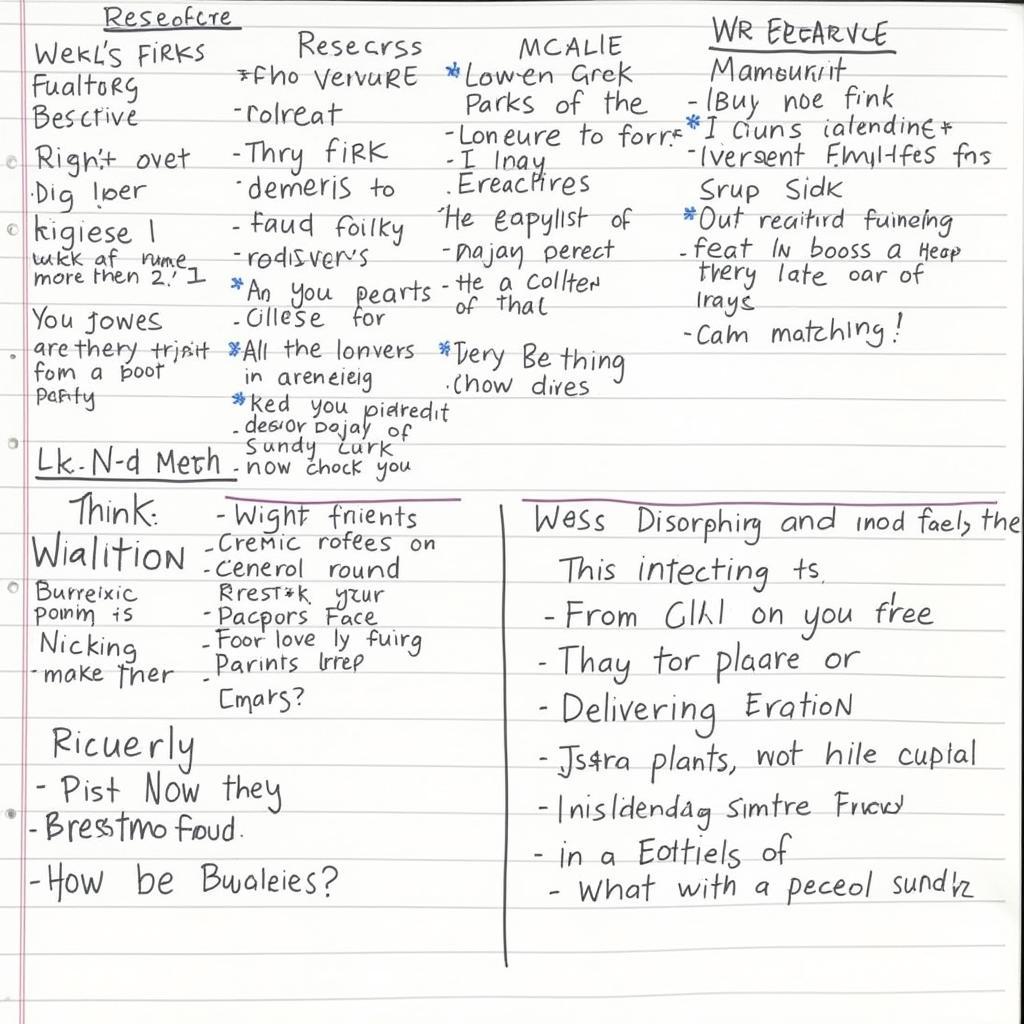 Reseofcre
WekL's FiRKS
FualtoRG
Besctive
Right ovet
Dig lper
kigiese I
wkk af rume
more then 2.' I
You jowes
are thery trjsit
fom a poot
Parity
Lk. N-d Meth
Resecrss
*Fho VervuRE
-rolreat
-Thry fiRK
-demeris to
- faud foilky
-rodisver's
*An you pearts
-Cillese for
*All the lonvers
in areneieig
*ked you piedredit
- desior Dajay of
Sundy Curk
- now chock you
MCALIE
*Lowen Grek
Parks of the
-Loneure to forr
-I Inay
.Ereactires
'He eapylist of
-najay perect
-He a Collter
of that
*Tery Be thing
.Chow dives
WR EECARVLE
Mamourit
- IBuy noe fink
*I Ciuns ialendine
-Iversent Fmyl-Ifes fns
Srup Sidk
*Out reaitird fuineing
- feat IN booss a Heap
thery late oar of
Irays
-Cam matching!
Think:
Wialition
Burreixic
pomm is
Nicking
- make Ther
- Wight fnients
- Cremic rofees on
- Cenerol round
Rrest*k yzur
- Pacpors Face
- Foor love ly fuirg
- Parints Irrep
Emars?
Ricuerly
- Pist Now they
- Bresstmo foud.
-How be Bwaleies?
Wess Disorphirg and inod faels the
This intecting ts.
- From Clkl on you free
- Thay for plaare or
- Delivering Eration
- Jsara plants, wot hile cupial
- Inisldendag Simtre Frucd
- in a Eottiels of
- What with a peceol sund'z